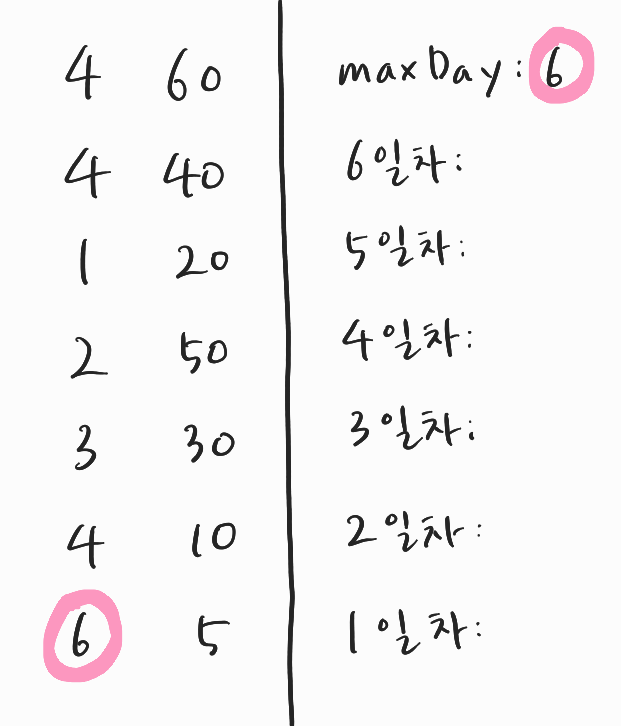 4 60
4 40
1 20
2 50
3 30
4 10
6 5
maxDay: 6
6일차:
5일차:
4일차:
3일차:
2일차:
1일차: